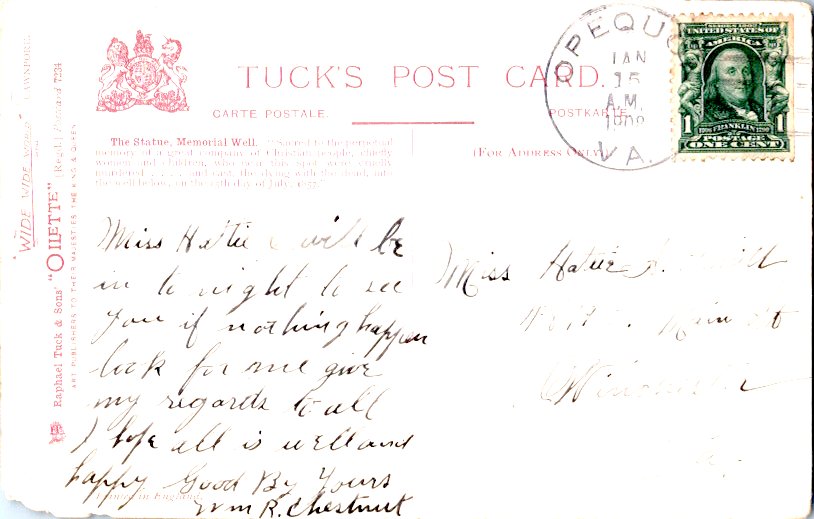 TUCK'S POST CARD.
CARTE POSTALE.
POSTKARTE.
(FOR ADDRESS ONLY.)
The Statue, Memorial Well. "Sacred to the perpetual
memory of a great company of Christian people, chiefly
women and children, who near this spot were cruelly
murdered . . . . and cast, the dying with the dead, into
the well below, on the
"WIDE WIDE WORLD"
Raphael Tuck & Sons' "OILETTE" (Regd.) Postcard 7234
ART PUBLISHERS TO THEIR MAJESTIES THE KING & QUEEN
Printed in England.
OPEQUO
JAN
15
A.M.
VA.
SERIES 1902
UNITED STATES OF
AMERICA
1 1
1706 FRANKLIN 1790
POSTAGE
ONE CENT
Miss Hattie I will be
in to night to see
you if nothing happen
look for me give
my regards to all
I hope all is well and
happy Good By Yours
Wm R. Chestnut
Miss Hattie
Main St
Winchester